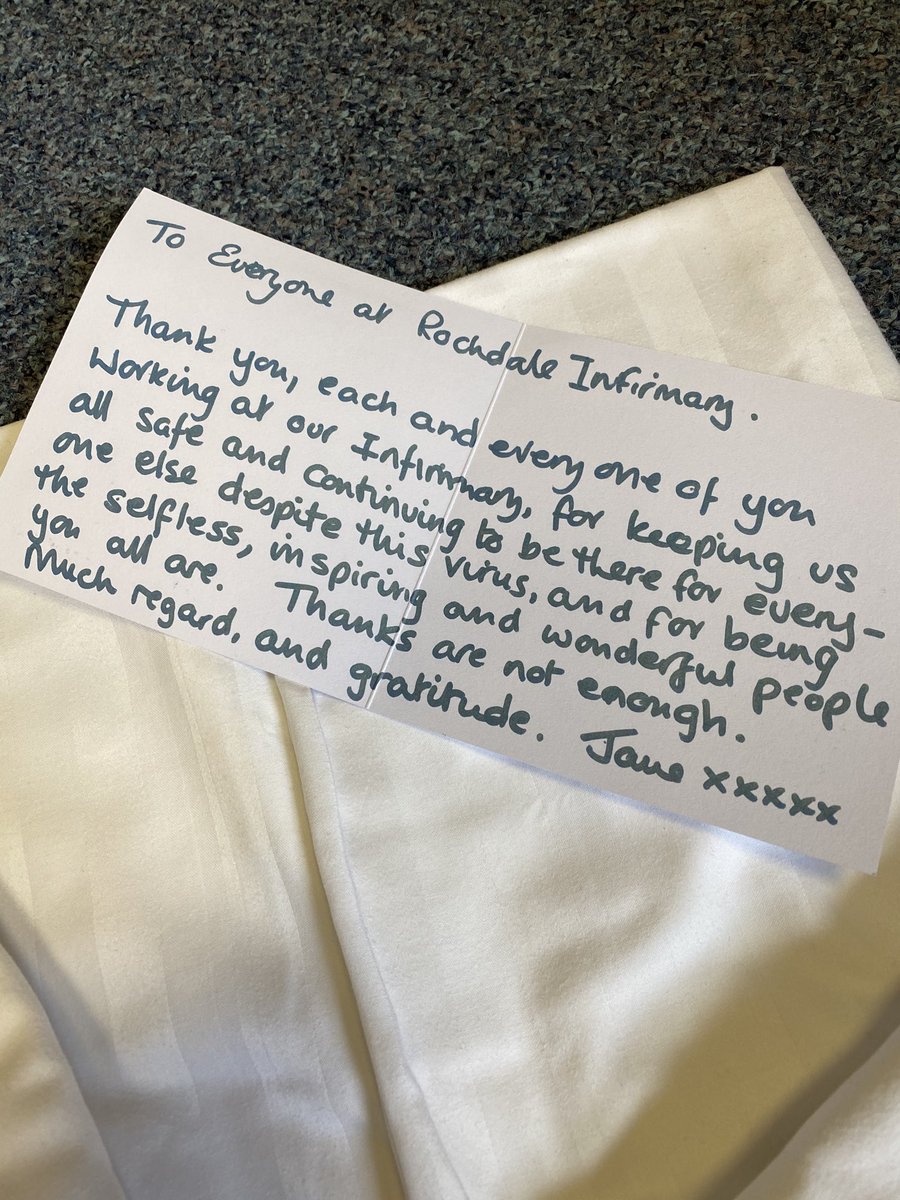 To Everyone at Rochdale Infirmary.
Thank you, each and every one of you
Working at our Infirmary, for keeping us
all safe and continuing to be there for every-
one else despite this virus, and for being
the selfless, inspiring and wonderful people
you all are. Thanks are not enough.
Much regard, and gratitude. Jane xxxxx